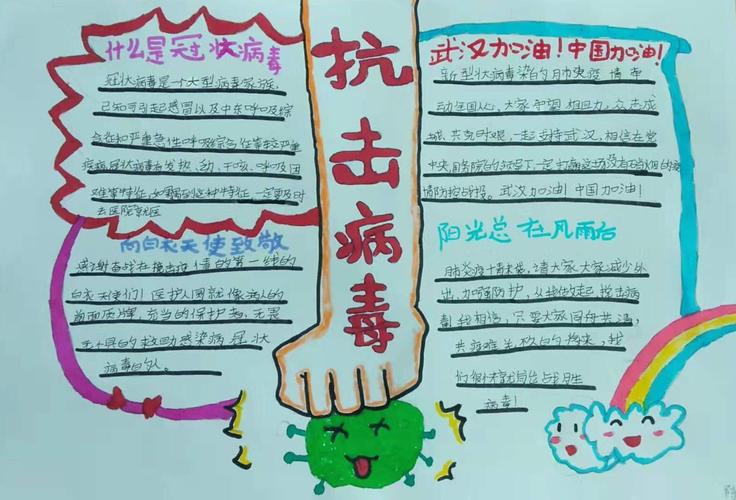 抗击病毒
什么是冠状病毒
冠状病毒是一个大型病毒家族,
已知可引起感冒以及中东呼吸综
合征和严重急性呼吸综合征等较严重
疾病冠状病毒有发热、力、干咳、呼吸困
难等特征,如果遇到这种特征,一定要及时
去医院就医
向白衣天使致敬
感谢奋战在抗击疫情的第一线的
白衣天使们!医护人员就像病人的
前面盾牌,充当的保护者,无畏
无惧的救助感染病冠状
病毒的人.
武汉加油!中国加油!
新型状病毒染的肺炎疫情牵
动全国人心,大家守望相力,众志成
城,共克时艰,一起支持武汉,相信在党
中央,国务院的领导下一定打赢这场没有硝烟的疫
情防控战役。武汉加油!中国加油!
阳光总在风雨后
肺炎疫情未来,请大家大家减少外
出,加强防护,从我做起,抗击病
毒!我相信,只要大家同舟共济,
共度难关,的将来,我
们很快就战胜
病毒!